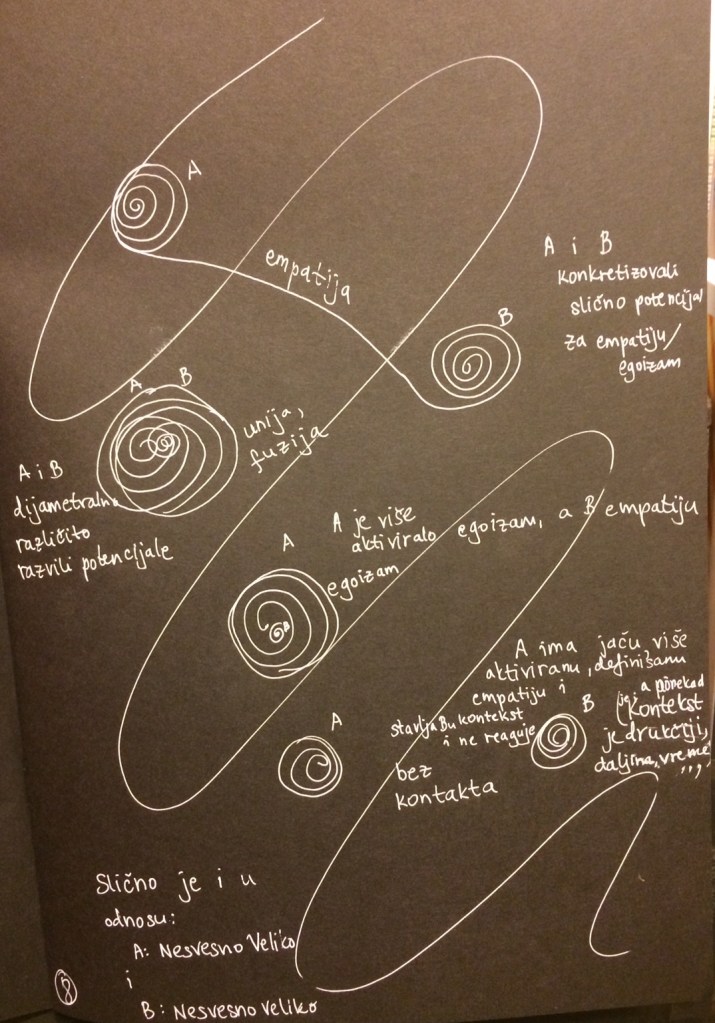 A
empatija
A i B
konkretizovali
slično potencijal
za empatiju/
egoizam
B
A B
unija,
fuzija
A i B
dijametralno
različito
razvili potencijale
A je više
aktiviralo egoizam, a B empatiju
A
egoizam
B
A ima jaču, više
aktiviranu, definisanu
empatiju i
stavlja B u kontekst
i ne reaguje
B
(jer, a ponekad
kontekst
je drukčiji,
daljina, vreme
,,,)
A
bez
kontakta
Slično je i u
odnosu:
A: Nesvesno Veliko
i
B: Nesvesno veliko
8